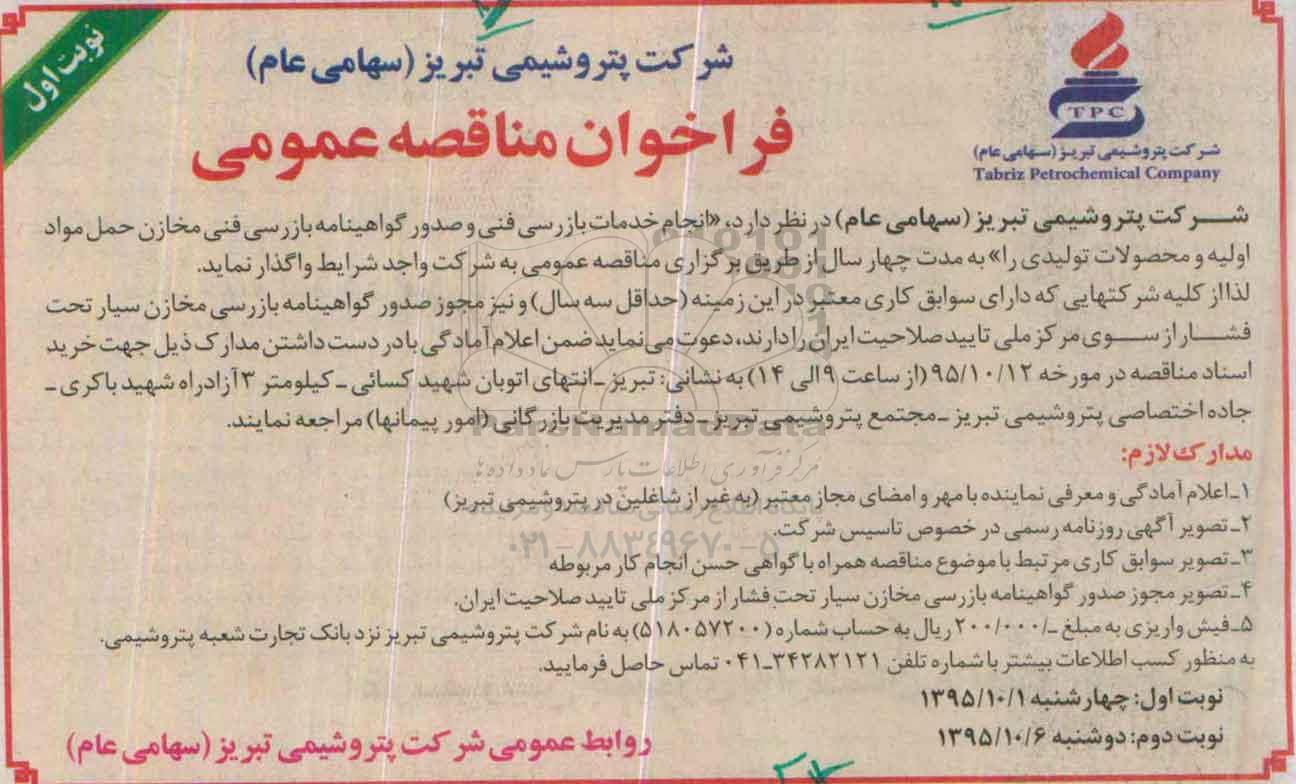 نوبت اول
شرکت پتروشیمی تبریز (سهامی عام)
فراخوان مناقصه عمومی
TPC
شرکت پتروشیمی تبریز (سهامی عام)
Tabriz Petrochemical Company
شرکت پتروشیمی تبریز (سهامی عام) در نظر دارد، «انجام خدمات بازرسی فنی و صدور گواهینامه بازرسی فنی مخازن حمل مواد
اولیه و محصولات تولیدی را» به مدت چهار سال از طریق برگزاری مناقصه عمومی به شرکت واجد شرایط واگذار نماید.
لذا از کلیه شرکتهایی که دارای سوابق کاری معتبر در این زمینه (حداقل سه سال) و نیز مجوز صدور گواهینامه بازرسی مخازن سیار تحت
فشار از سوی مرکز ملی تایید صلاحیت ایران را دارند، دعوت می‌نماید ضمن اعلام آمادگی با در دست داشتن مدارک ذیل جهت خرید
اسناد مناقصه در مورخه ۹۵/۱۰/۱۲ (از ساعت ۹ الی ۱۴) به نشانی: تبریز ـ انتهای اتوبان شهید کسائی ـ کیلومتر ۳ آزادراه شهید باکری ـ
جاده اختصاصی پتروشیمی تبریز ـ مجتمع پتروشیمی تبریز ـ دفتر مدیریت بازرگانی (امور پیمانها) مراجعه نمایند.
مدارک لازم:
۱ـ اعلام آمادگی و معرفی نماینده با مهر و امضای مجاز معتبر (به غیر از شاغلین در پتروشیمی تبریز)
۲ـ تصویر آگهی روزنامه رسمی در خصوص تاسیس شرکت.
۳ـ تصویر سوابق کاری مرتبط با موضوع مناقصه همراه با گواهی حسن انجام کار مربوطه
۴ـ تصویر مجوز صدور گواهینامه بازرسی مخازن سیار تحت فشار از مرکز ملی تایید صلاحیت ایران.
۵ـ فیش واریزی به مبلغ ـ/۲۰۰/۰۰۰ ریال به حساب شماره (۵۱۸۰۵۷۲۰۰) به نام شرکت پتروشیمی تبریز نزد بانک تجارت شعبه پتروشیمی.
به منظور کسب اطلاعات بیشتر با شماره تلفن ۳۴۲۸۲۱۲۱-۰۴۱ تماس حاصل فرمایید.
نوبت اول: چهارشنبه ۱۳۹۵/۱۰/۱
نوبت دوم: دوشنبه ۱۳۹۵/۱۰/۶
روابط عمومی شرکت پتروشیمی تبریز (سهامی عام)
ParsNamadData
مرکز فرآوری اطلاعات پارس نماد داده‌ها
۰۲۱-۸۸۳۴۹۶۷۰-۵